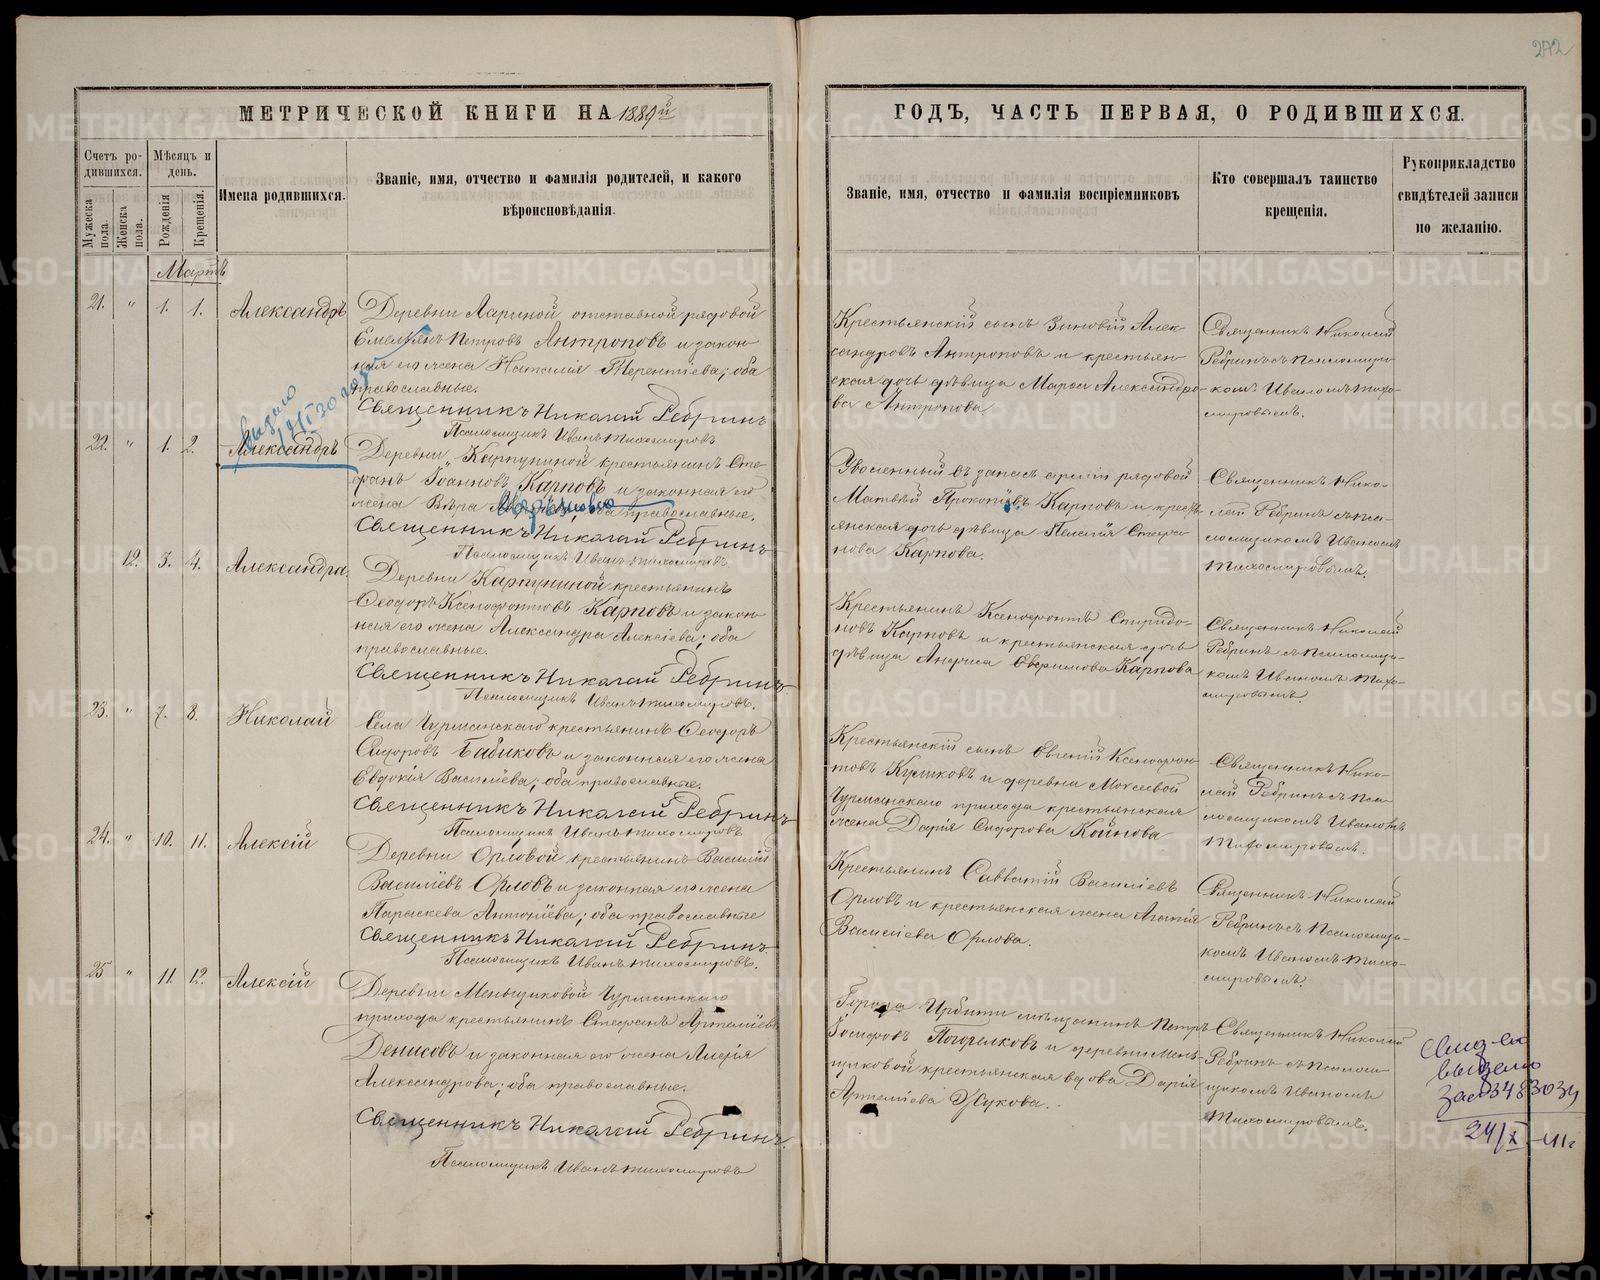 272
МЕТРИЧЕСКОЙ КНИГИ НА 1889й
ГОДЪ, ЧАСТЬ ПЕРВАЯ, О РОДИВШИХСЯ.
Счетъ родившихся.
Мѣсяцъ и день.
Мужеска пола.
Женска пола.
Рожденія
Крещенія.
Имена родившихся.
Званіе, имя, отчество и фамилія родителей, и какого
вѣроисповѣданія.
Званіе, имя, отчество и фамилія воспріемниковъ
Кто совершалъ таинство
крещенія.
Рукоприкладство
свидѣтелей записи
по желанію.
Мартъ
21. " 1. 1. Александръ
Деревни Лариной отставной рядовой
Емельянъ Петровъ Антроповъ и закон-
ная его жена Наталія Терентіева; оба
православные.
Священникъ Николай Ребринъ
Псаломщикъ Иванъ Тихомировъ
Крестьянскій сынъ Зиновій Алек-
сандровъ Антроповъ и крестьян-
ская дочь дѣвица Марѳа Александро-
ва Антропова.
Священникъ Николай
Ребринъ съ Псаломщи-
комъ Иваномъ Тихо-
мировымъ.
22. " 1. 2. Александръ
Деревни Карпуниной крестьянинъ Сте-
фанъ Іоанновъ Карповъ и законная его
жена Вѣра оба православные.
Священникъ Николай Ребринъ
Псаломщикъ Иванъ Тихомировъ.
Уволенный въ запасъ арміи рядовой
Матвѣй Прокопіевъ Карповъ и кресть-
янская дочь дѣвица Пелагія Стефа-
нова Карпова.
Священникъ Нико-
лай Ребринъ съ Пса-
ломщикомъ Иваномъ
Тихомировымъ.
12. 3. 4. Александра.
Деревни Карпуниной крестьянинъ
Ѳеодоръ Ксенофонтовъ Карповъ и закон-
ная его жена Александра Алексіева; оба
православные.
Священникъ Николай Ребринъ.
Псаломщикъ Иванъ Тихомировъ.
Крестьянинъ Ксенофонтъ Спиридо-
новъ Карповъ и крестьянская дочь
дѣвица Анфиса Евфимова Карпова
Священникъ Николай
Ребринъ съ Псаломщи-
комъ Иваномъ Тихо-
мировымъ.
23. " 7. 8. Николай
Села Чурманскаго крестьянинъ Ѳеодоръ
Сидоровъ Бабиковъ и законная его жена
Евдокія Василіева; оба православные.
Священникъ Николай Ребринъ
Псаломщикъ Иванъ Тихомировъ
Крестьянскій сынъ Евгеній Ксенофон-
товъ Куликовъ и деревни Мокеевой
Чурманскаго прихода крестьянская
жена Дарія Сидорова Койнова
Священникъ Нико-
лай Ребринъ съ Пса-
ломщикомъ Иваномъ
Тихомировымъ.
24. " 10. 11. Алексій
Деревни Орловой крестьянинъ Василій
Василіевъ Орловъ и законная его жена
Параскева Антоніева; оба православные
Священникъ Николай Ребринъ
Псаломщикъ Иванъ Тихомировъ.
Крестьянинъ Савватій Василіевъ
Орловъ и крестьянская жена Агапія
Василіева Орлова.
Священникъ Николай
Ребринъ съ Псаломщи-
комъ Иваномъ Тихо-
мировымъ.
25 " 11. 12. Алексій
Деревни Меньщиковой Чурманскаго
прихода крестьянинъ Стефанъ Артеміевъ
Денисовъ и законная его жена Лидія
Александрова; оба православные.
Священникъ Николай Ребринъ.
Псаломщикъ Иванъ Тихомировъ
Города Ирбити мѣщанинъ Петръ
Іосифовъ Погорелковъ и деревни Мень-
щиковой крестьянская вдова Дарія
Артеміева Жукова.
Священникъ Николай
Ребринъ съ Псалом-
щикомъ Иваномъ
Тихомировымъ.
выдано
24/X-41г
METRIKI.GASO-URAL.RU